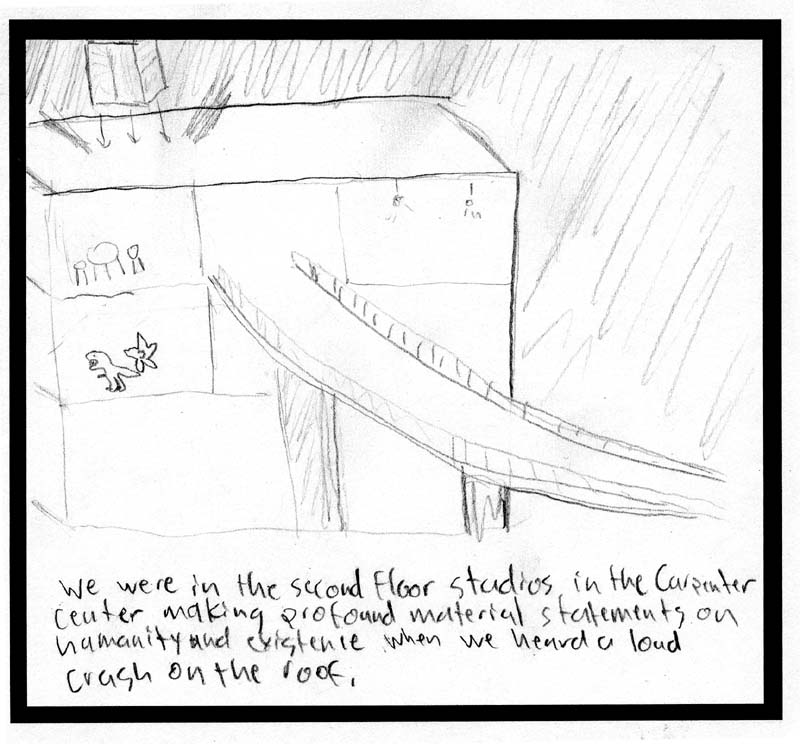 we were in the second floor studios in the Carpenter
Center making profound material statements on
humanity and existence when we heard a loud
crash on the roof.